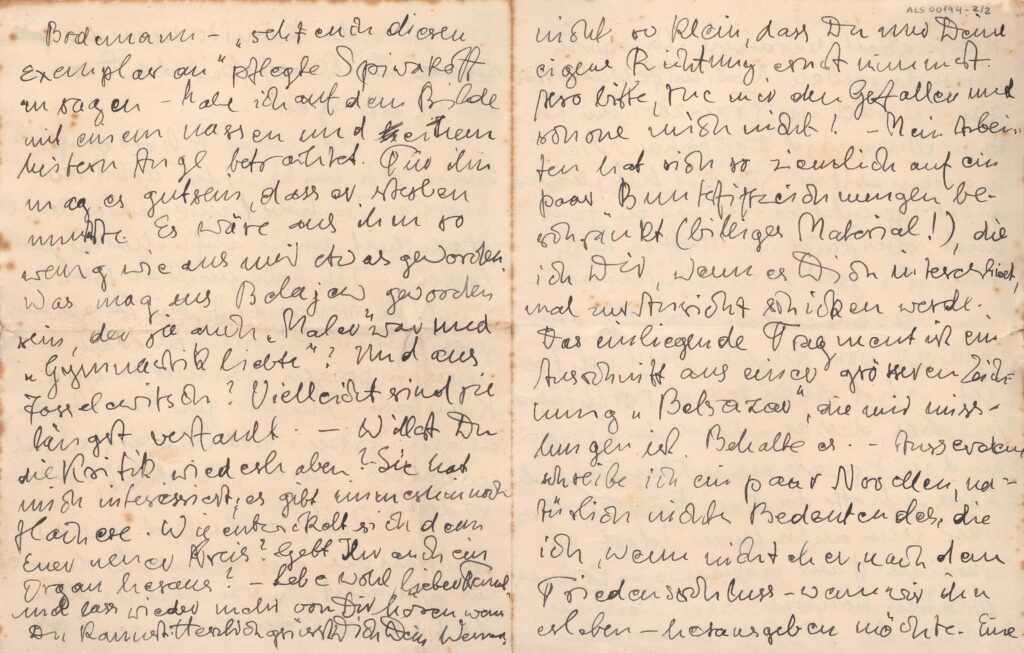 ALS.00194-2/2
Bodemann – „seht euch diesen
Exemplar an" pflegte Spiwakoff
zu sagen – habe ich auf dem Bilde
mit einem nassen und einem
Auge betrachtet. Für ihn
mag es gut sein, dass er sterben
musste. Es wäre aus ihm so
wenig wie aus mir etwas geworden.
Was mag aus Belajew geworden
sein, der ja auch „Maler" war und
„Gymnastik liebte"? Und aus
Josselewitsch? Vielleicht sind sie
längst verfault. – Willst Du
die Kritik wieder haben? Sie hat
mich interessiert, es gibt immerhin noch
Wie entwickelt sich denn
Euer neuer Kreis? Gebt Ihr auch ein
Organ heraus? – Lebe wohl lieber Freund
und lass wieder mehr von Dir hören, wenn
Du kannst. Herzlich grüsst Dich Dein Werner
nicht so klein, dass Du und Deine
eigene Richtung ernst nimmst.
Also bitte, tue mir den Gefallen und
schone mich nicht! – Mein Arbei-
ten hat sich so ziemlich auf ein
paar Buntstiftzeichnungen be-
schränkt (billiges Material!), die
ich Dir, wenn es Dich interessiert,
mal zur Ansicht schicken werde.
Das einliegende Fragment ist ein
Ausschnitt aus einer grösseren Zeich-
nung „Belsazar", die mir miss-
lungen ist. Behalte es. – Ausserdem
schreibe ich ein paar Novellen, na-
türlich nichts Bedeutendes, die
ich, wenn nicht eher, nach dem
Friedensschluss – wenn wir ihn
erleben – herausgeben möchte. Eine